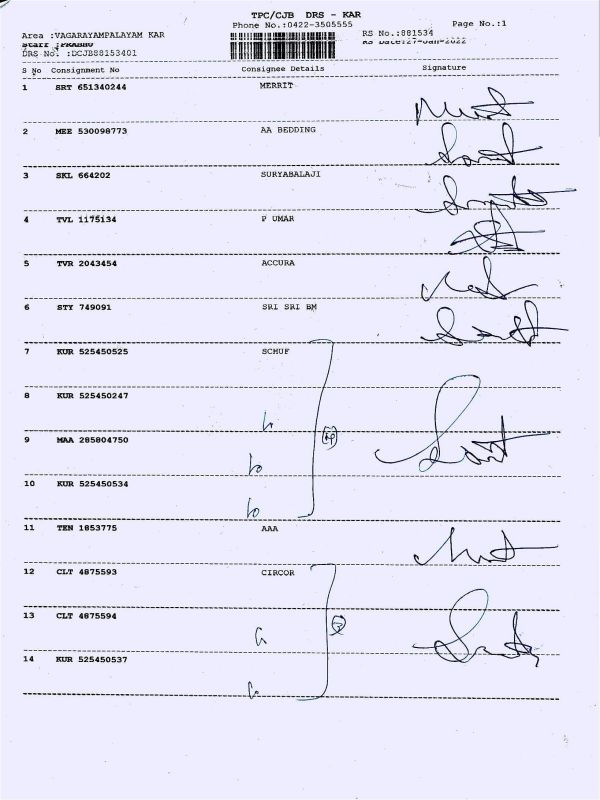 TPC/CJB DRS - KAR
Phone No.:0422-3505555 Page No.:1
Area :VAGARAYAMPALAYAM KAR RS No.:881534
Staff :PRABHU RS Date:27-Jan-2022
DRS No. :DCJB88153401
S No Consignment No Consignee Details Signature
1 SRT 651340244 MERRIT
2 MEE 530098773 AA BEDDING
3 SKL 664202 SURYABALAJI
4 TVL 1175134 P UMAR
5 TVR 2043454 ACCURA
6 STY 749091 SRI SRI BM
7 KUR 525450525 SCHUF
8 KUR 525450247
9 MAA 285804750
10 KUR 525450534
11 TEN 1853775 AAA
12 CLT 4875593 CIRCOR
13 CLT 4875594
14 KUR 525450537